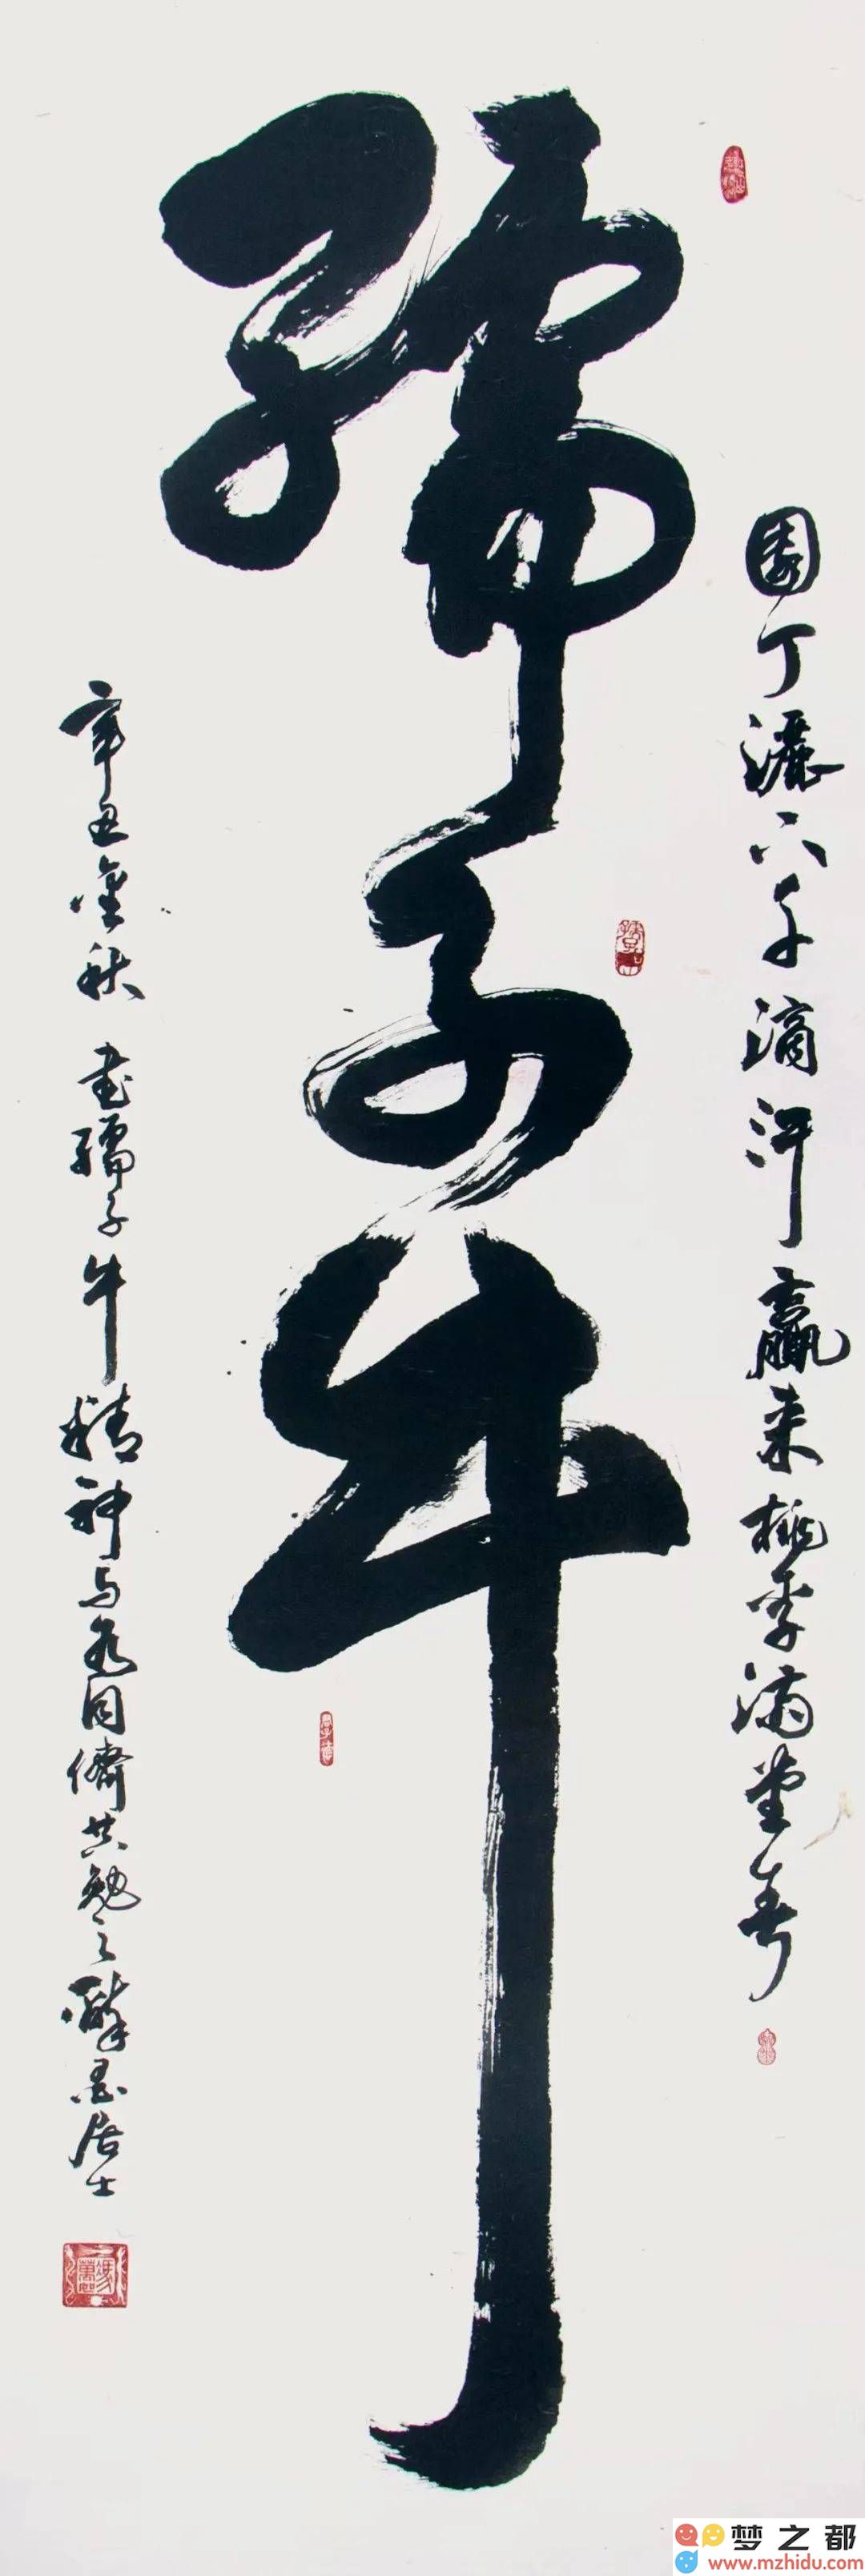 園丁灑下千滴汗贏來桃李滿堂春
孺子牛
辛丑金秋 书孺子牛精神与众同儕共勉之 醉墨居士
梦之都
www.mzhidu.com